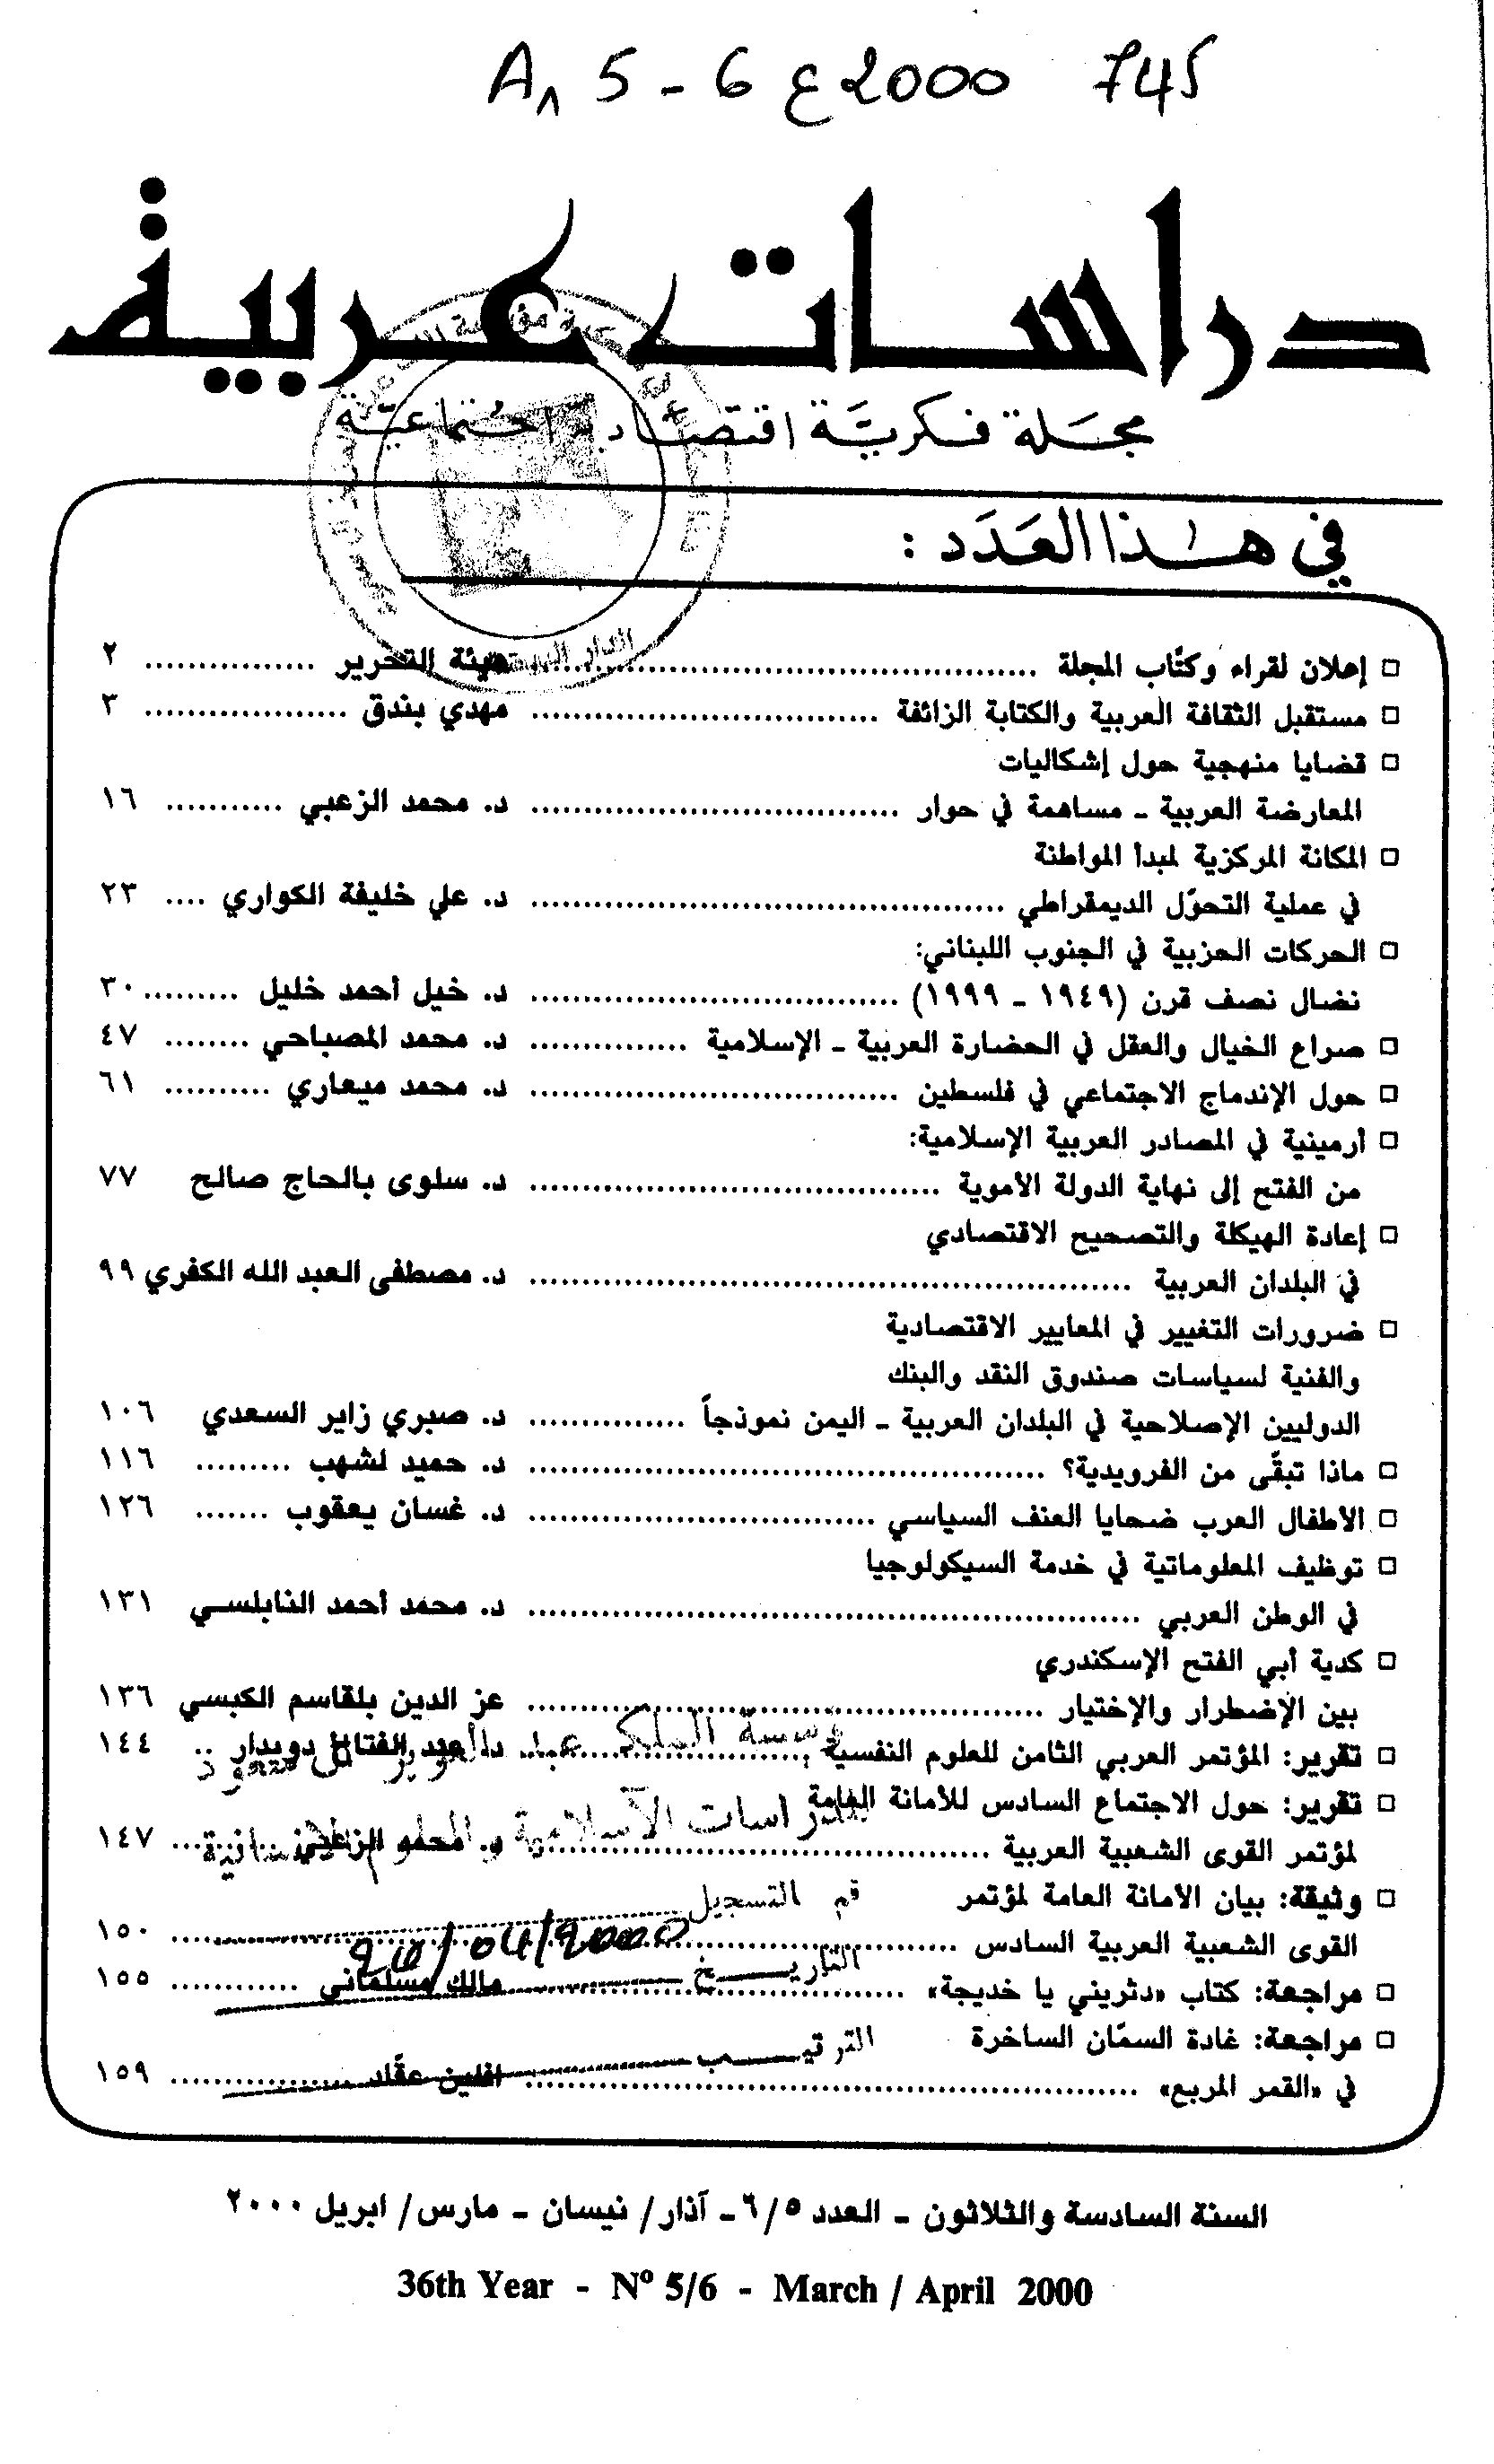 A1 5 - 6 ع 2000 745
دراسات عربية
مجلة فكرية اقتصادية اجتماعية
في هذا العدد :
□ إعلان لقراء وكتّاب المجلة ........ هيئة التحرير ........ ٢
□ مستقبل الثقافة العربية والكتابة الزائفة ........ مهدي بندق ........ ٣
□ قضايا منهجية حول إشكاليات
المعارضة العربية ـ مساهمة في حوار ........ د. محمد الزعبي ........ ١٦
□ المكانة المركزية لمبدأ المواطنة
في عملية التحوّل الديمقراطي ........ د. علي خليفة الكواري .... ٢٣
□ الحركات الحزبية في الجنوب اللبناني:
نضال نصف قرن (١٩٤٩ ـ ١٩٩٩) ........ د. خيل أحمد خليل ........ ٣٠
□ صراع الخيال والعقل في الحضارة العربية ـ الإسلامية ........ د. محمد المصباحي ........ ٤٧
□ حول الإندماج الاجتماعي في فلسطين ........ د. محمد ميعاري ........ ٦١
□ أرمينية في المصادر العربية الإسلامية:
من الفتح إلى نهاية الدولة الأموية ........ د. سلوى بالحاج صالح ٧٧
□ إعادة الهيكلة والتصحيح الاقتصادي
في البلدان العربية ........ د. مصطفى العبد الله الكفري ٩٩
□ ضرورات التغيير في المعايير الاقتصادية
والفنية لسياسات صندوق النقد والبنك
الدوليين الإصلاحية في البلدان العربية ـ اليمن نموذجاً ........ د. صبري زاير السعدي ١٠٦
□ ماذا تبقّى من الفرويدية؟ ........ د. حميد لشهب ........ ١١٦
□ الأطفال العرب ضحايا العنف السياسي ........ د. غسان يعقوب ....... ١٢٦
□ توظيف المعلوماتية في خدمة السيكولوجيا
في الوطن العربي ........ د. محمد أحمد النابلسي ١٣١
□ كدية أبي الفتح الإسكندري
بين الإضطرار والإختيار ........ عز الدين بلقاسم الكبسي ١٣٦
□ تقرير: المؤتمر العربي الثامن للعلوم النفسية ........ د. عبد الفتاح دويدار .. ١٤٤
□ تقرير: حول الاجتماع السادس للأمانة العامة
لمؤتمر القوى الشعبية العربية ........ د. محمد الزعبي ........ ١٤٧
□ وثيقة: بيان الأمانة العامة لمؤتمر
القوى الشعبية العربية السادس ........ ١٥٠
□ مراجعة: كتاب «دثريني يا خديجة» ........ مالك مسلماني ........ ١٥٥
□ مراجعة: غادة السمّان الساخرة
في «القمر المربع» ........ افلين عقّاد ........ ١٥٩
مؤسسة الملك عبد العزيز آل سعود
للدراسات الآسلامية والعلوم الانسانية
قم التسجيل
التاريخ /04/2000
الترتيب
السنة السادسة والثلاثون ـ العدد ٦/٥ ـ آذار/ نيسان ـ مارس/ ابريل ٢٠٠٠
36th Year - Nº 5/6 - March / April 2000